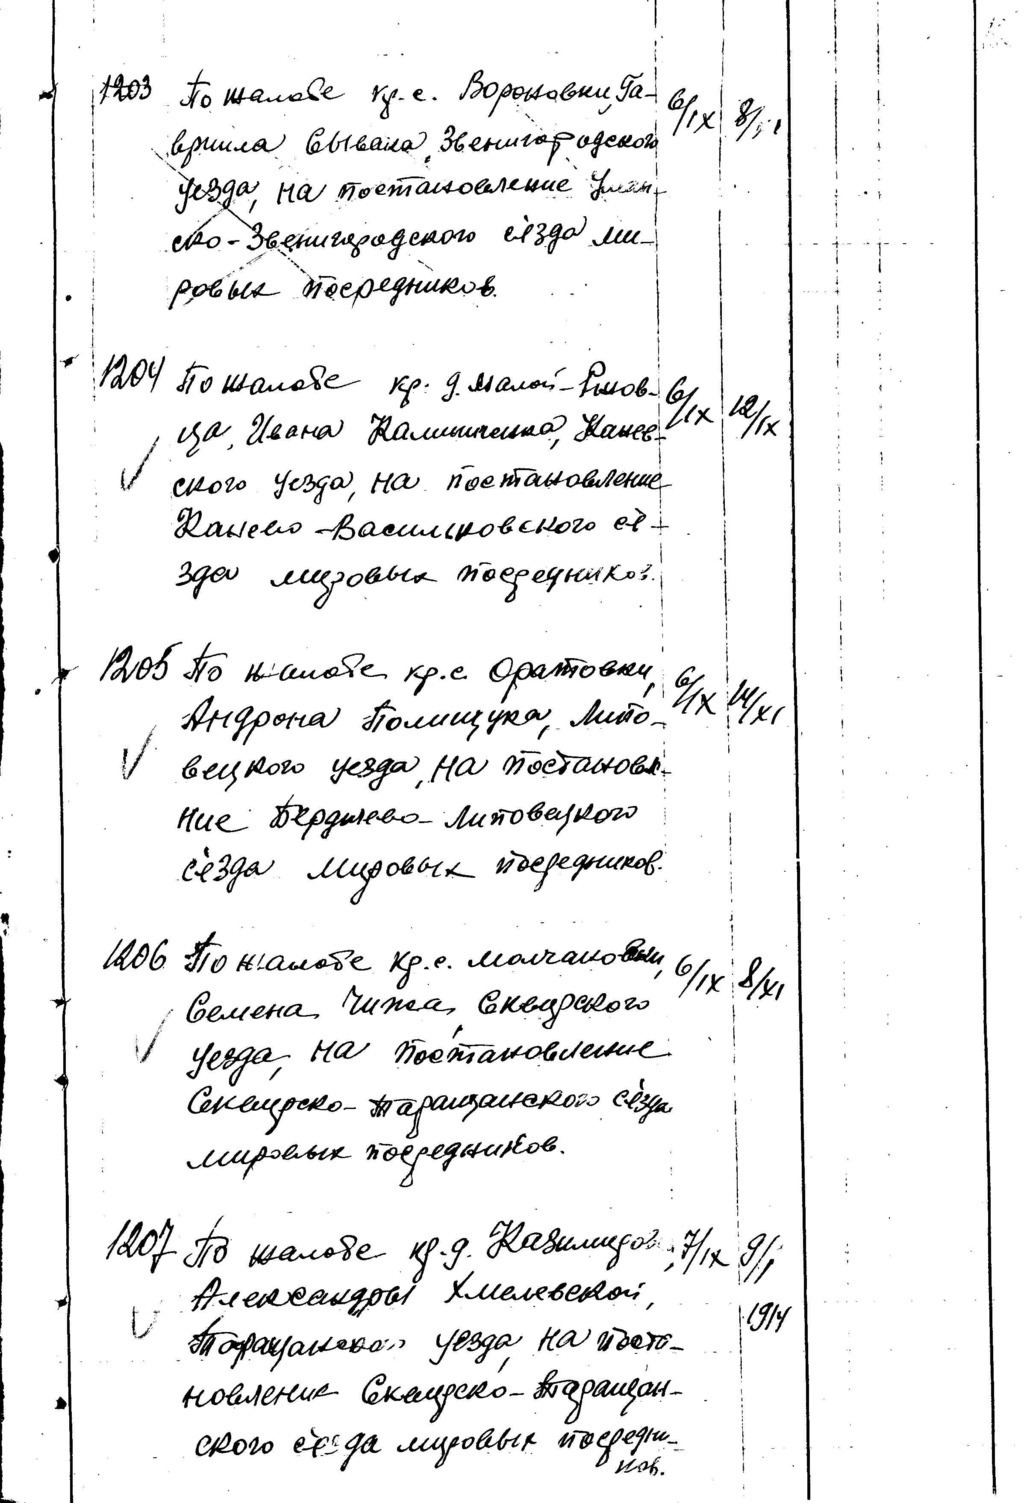 1203 По жалобе кр. с. Вороновки, Га- 6/IX 8/XI
вриила Сывака, Звенигородского
уезда, на постановление Уман-
ско-Звенигородского съезда ми-
ровых посредников.
1204 По жалобе кр. д. Малой- 6/IX 12/IX
ца, Ивана Калиниченка, Канев-
ского уезда, на постановление
Канево-Васильковского съе-
зда мировых посредников.
1205 По жалобе кр. с. Оратовки, 6/IX 14/XI
Андрона Полищука, Липо-
вецкого уезда, на постановле-
ние Бердичево-Липовецкого
съезда мировых посредников.
1206 По жалобе кр. с. Молчановки, 6/IX 8/XI
Семена Чижа, Сквирского
уезда, на постановление
Сквирско-Таращанского съезда
мировых посредников.
1207 По жалобе кр. д. 7/IX 9/I
Александры Хмелевской, 1914
Таращанского уезда, на поста-
новление Сквирско-Таращан-
ского съезда мировых посредни-
ков.